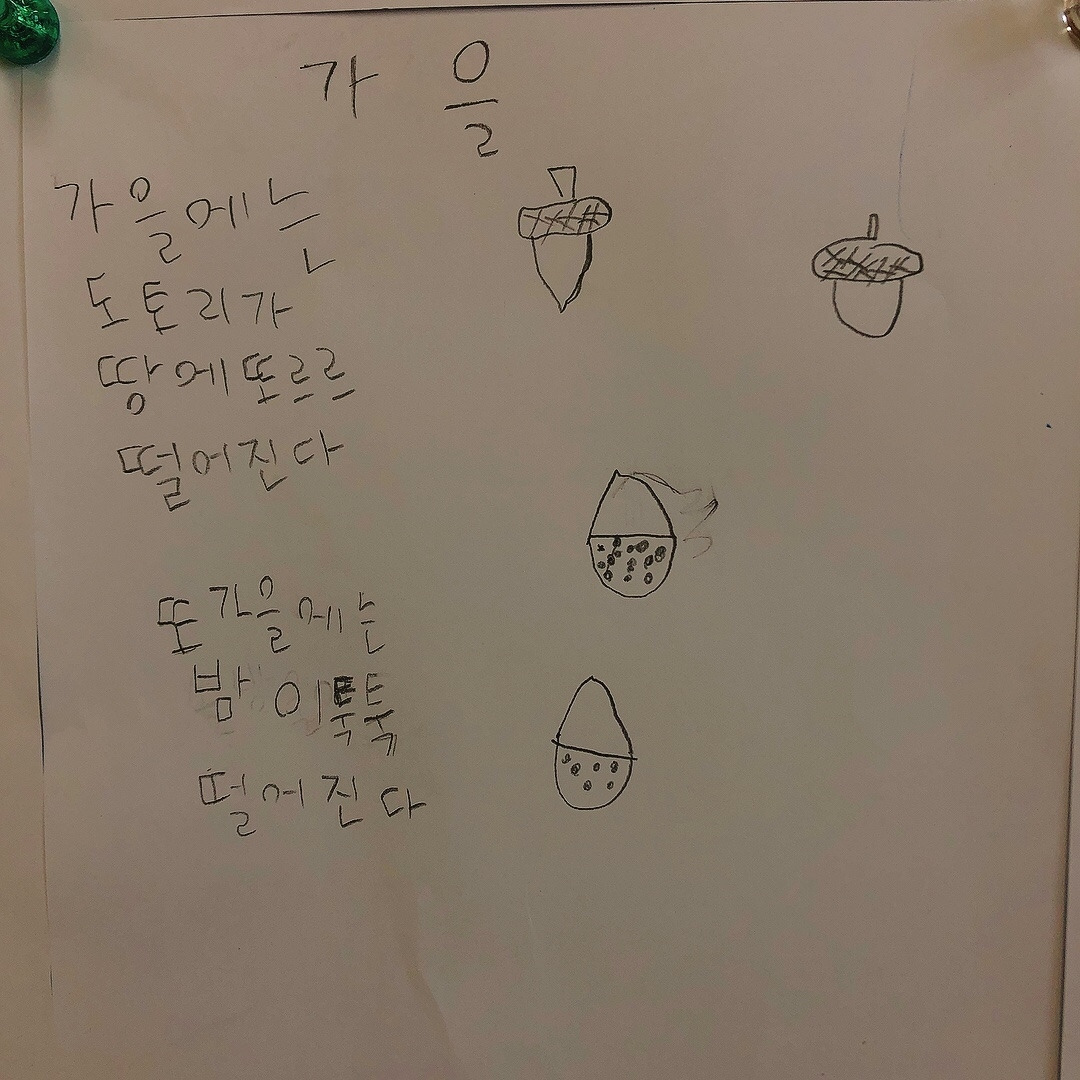 가을
가을에는
도토리가
땅에 또르르
떨어진다
또 가을에는
밤이 툭툭
떨어진다